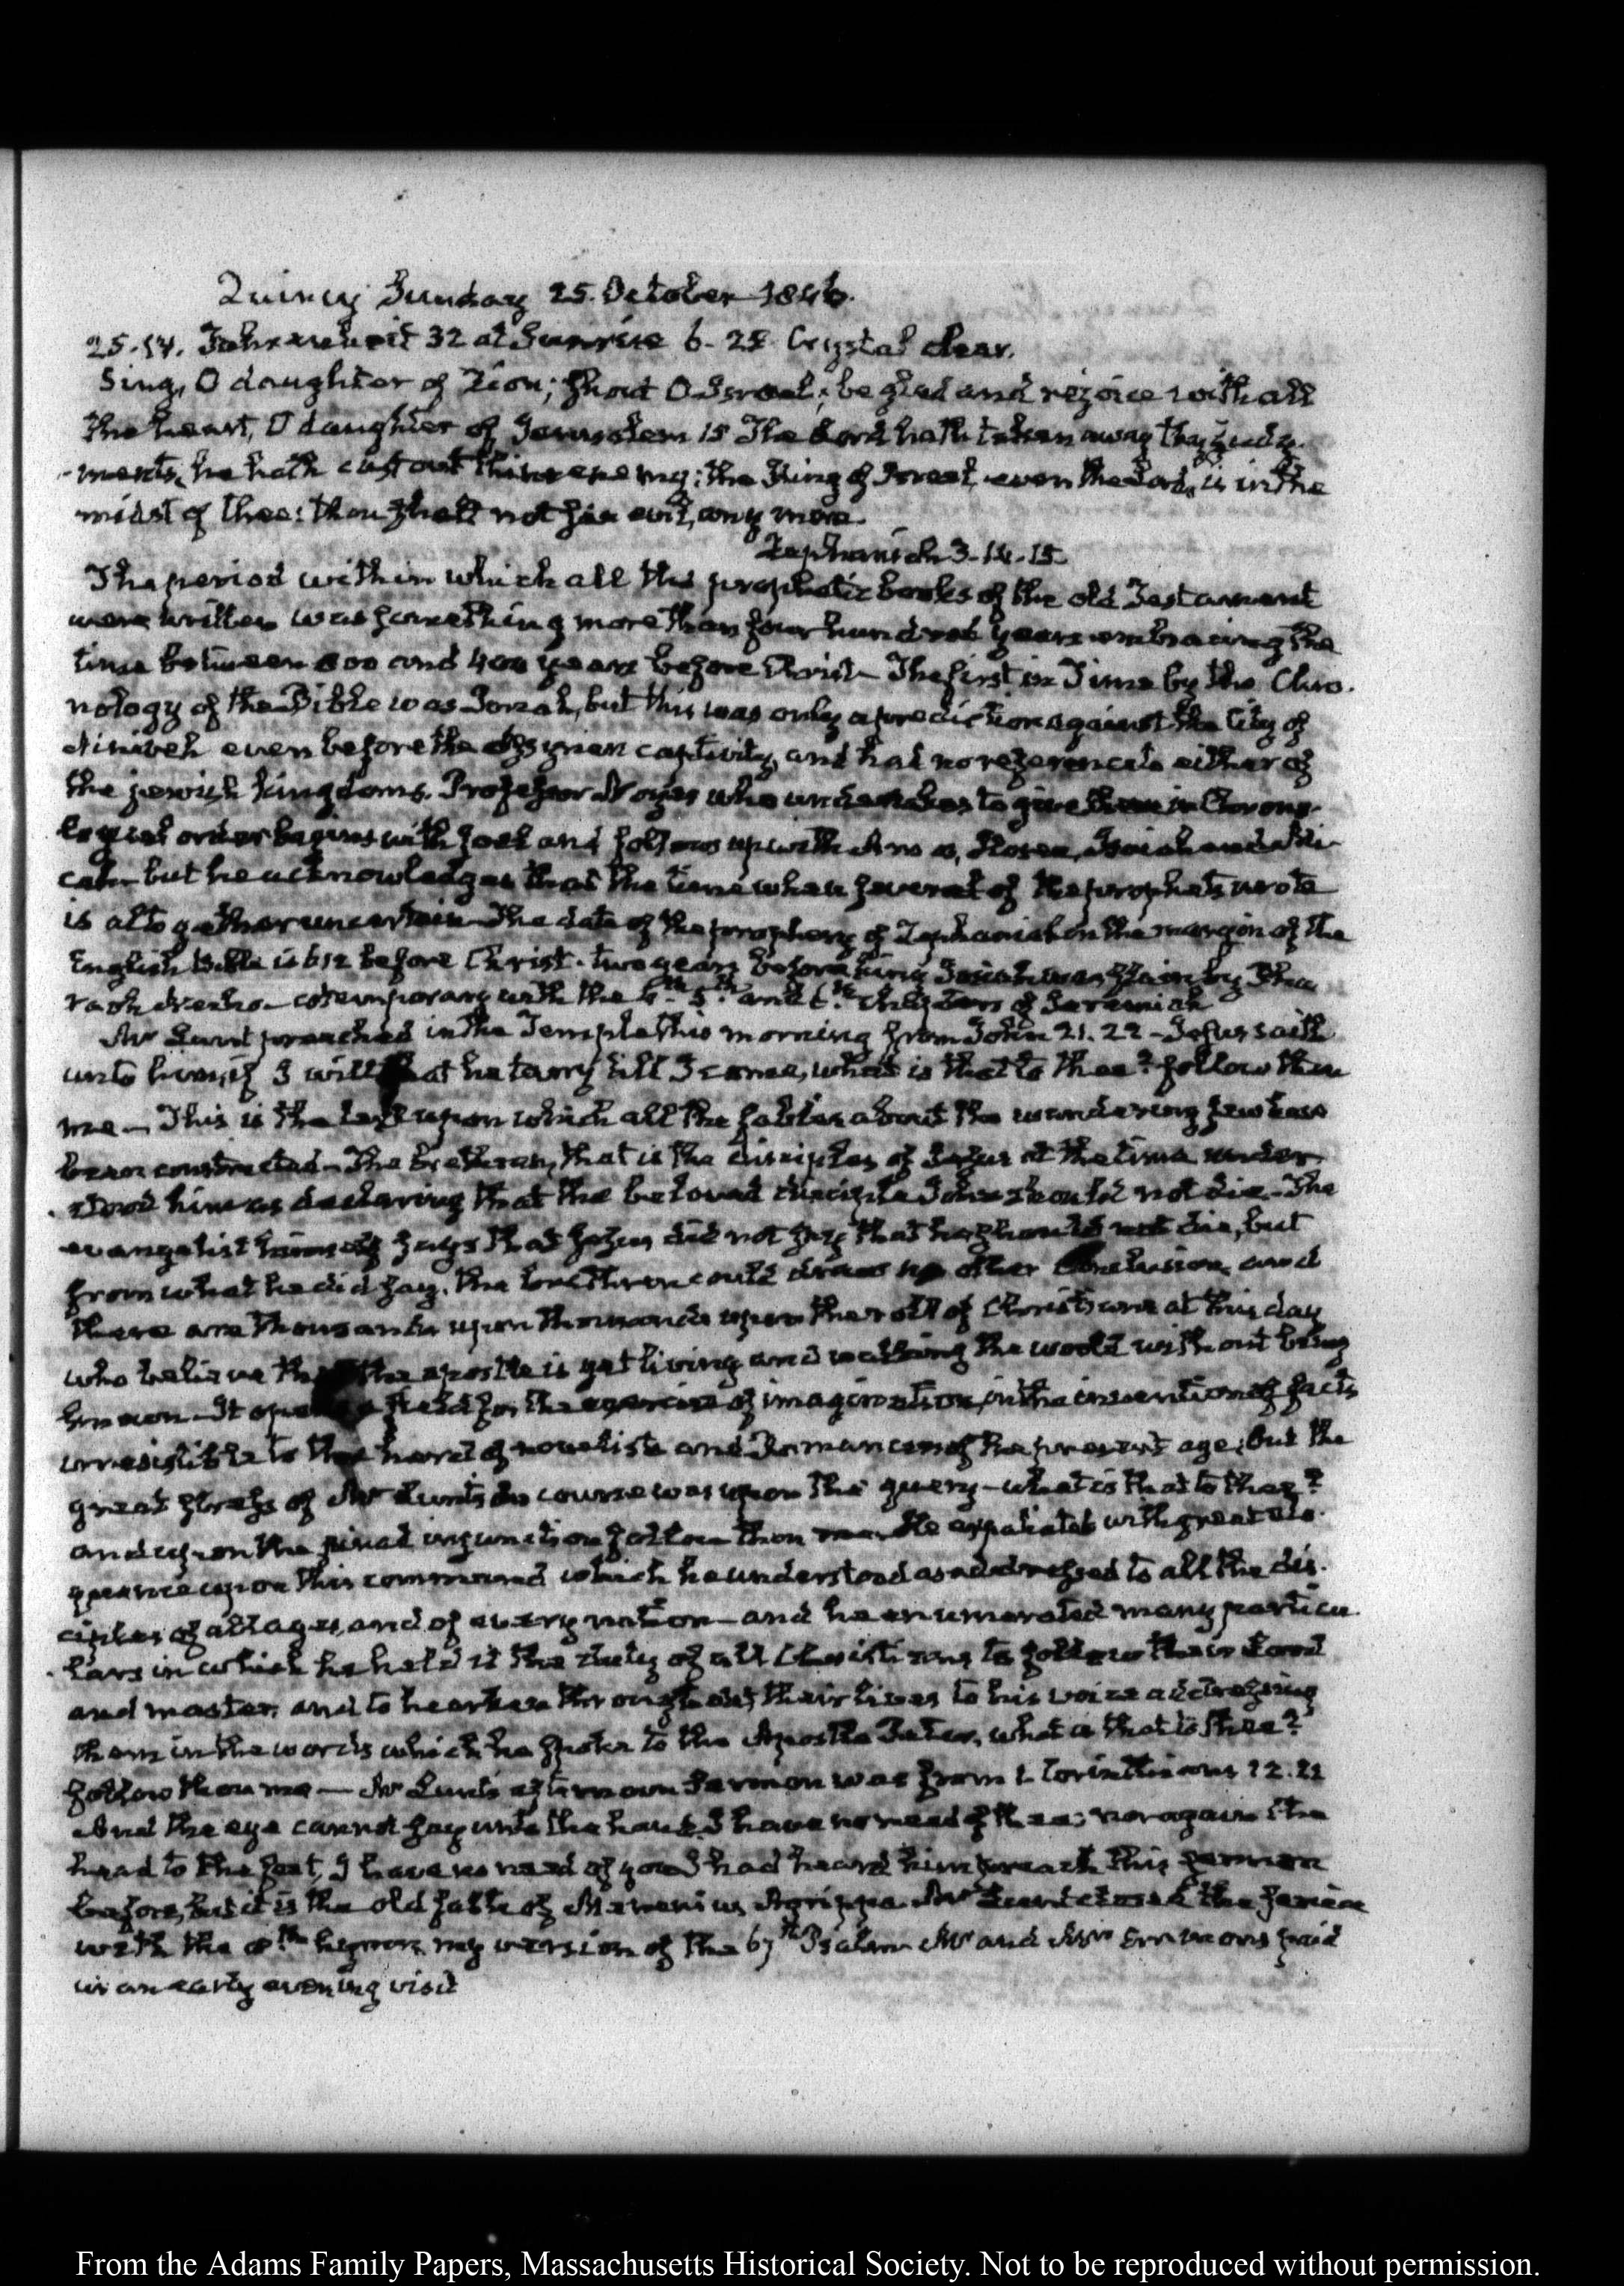 Quincy Sunday 25. October 1846.
25. IV. Fahrenheit 32 at Sunrise 6-25 Crystal clear.
Sing, O daughter of Zion; shout O Israel; be glad and rejoice with all
the heart, O daughter of Jerusalem 15 The Lord hath taken away thy judg-
-ments, he hath cast out thine enemy: the King of Israel even the Lord, is in the
midst of thee: thou shalt not see evil, any more.
Zephaniah 3-14.15.
The period within which all the prophetic books of the old Testament
were written was something more than four hundred years embracing the
time between 800 and 400 years before Christ - The first in Time by the Chro-
nology of the Bible was Jonah, but this was only a prediction against the City of
Niniveh even before the Assyrian captivity, and had no reference to either of
the jewish kingdoms. Professor Noyes who undertakes to give them in Chrono-
logical order begins with Joel and follows up with Amos, Hosea, Isaiah and Mi-
cah - but he acknowledges that the time when several of the prophets wrote
is altogether uncertain - The date of the prophecy of Zephaniah on the margin of the
English Bible is 612 before Christ. two years before king Josiah was slain by Pha
raoh Necho - cotemporary with the 4th 5th and 6th chapters of Jeremiah
Mr Lunt preached in the Temple this morning from John 21. 22 - Jesus saith
unto him, if I will that he tarry till I come, what is that to thee? follow thou
me - This is the text upon which all the fables about the wandering jew have
been constructed - The brethren, that is the disciples of Jesus at the time under-
-stood him as declaring that the beloved disciple John should not die - The
evangelist himself says that Jesus did not say that he should not die, but
from what he did say, the brethren could draw no other conclusion, and
there are thousands upon thousands upon the roll of Christians at this day
who believe that the apostle is yet living and walking the world without being
known - It opens a field for the exercise of imagination, in the invention of facts
irresistible to the herd of novelists and Romancers of the present age; but the
great stress of Mr Lunt's discourse was upon the query - what is that to thee?
and upon the final injunction follow thou me - He expatiated with great elo-
quence upon this command which he understood as addressed to all the dis-
ciples of all ages, and of every nation - and he enumerated many particu-
-lars in which he held it the duty of all Christians to follow their Lord
and master, and to hearken throughout their lives to his voice addressing
them in the words which he spoke to the Apostle Peter, what is that to thee?
follow thou me — Mr Lunt's afternoon Sermon was from 1. Corinthians 12.21
And the eye cannot say unto the hand, I have no need of thee: nor again the
head to the feet, I have no need of you I had heard him preach this sermon
before, but it is the old fable of Menenius Agrippa. Mr Lunt closed the service
with the hymn my version of the 67th Psalm Mr and Mrs Emmons paid
us an early evening visit
From the Adams Family Papers, Massachusetts Historical Society. Not to be reproduced without permission.